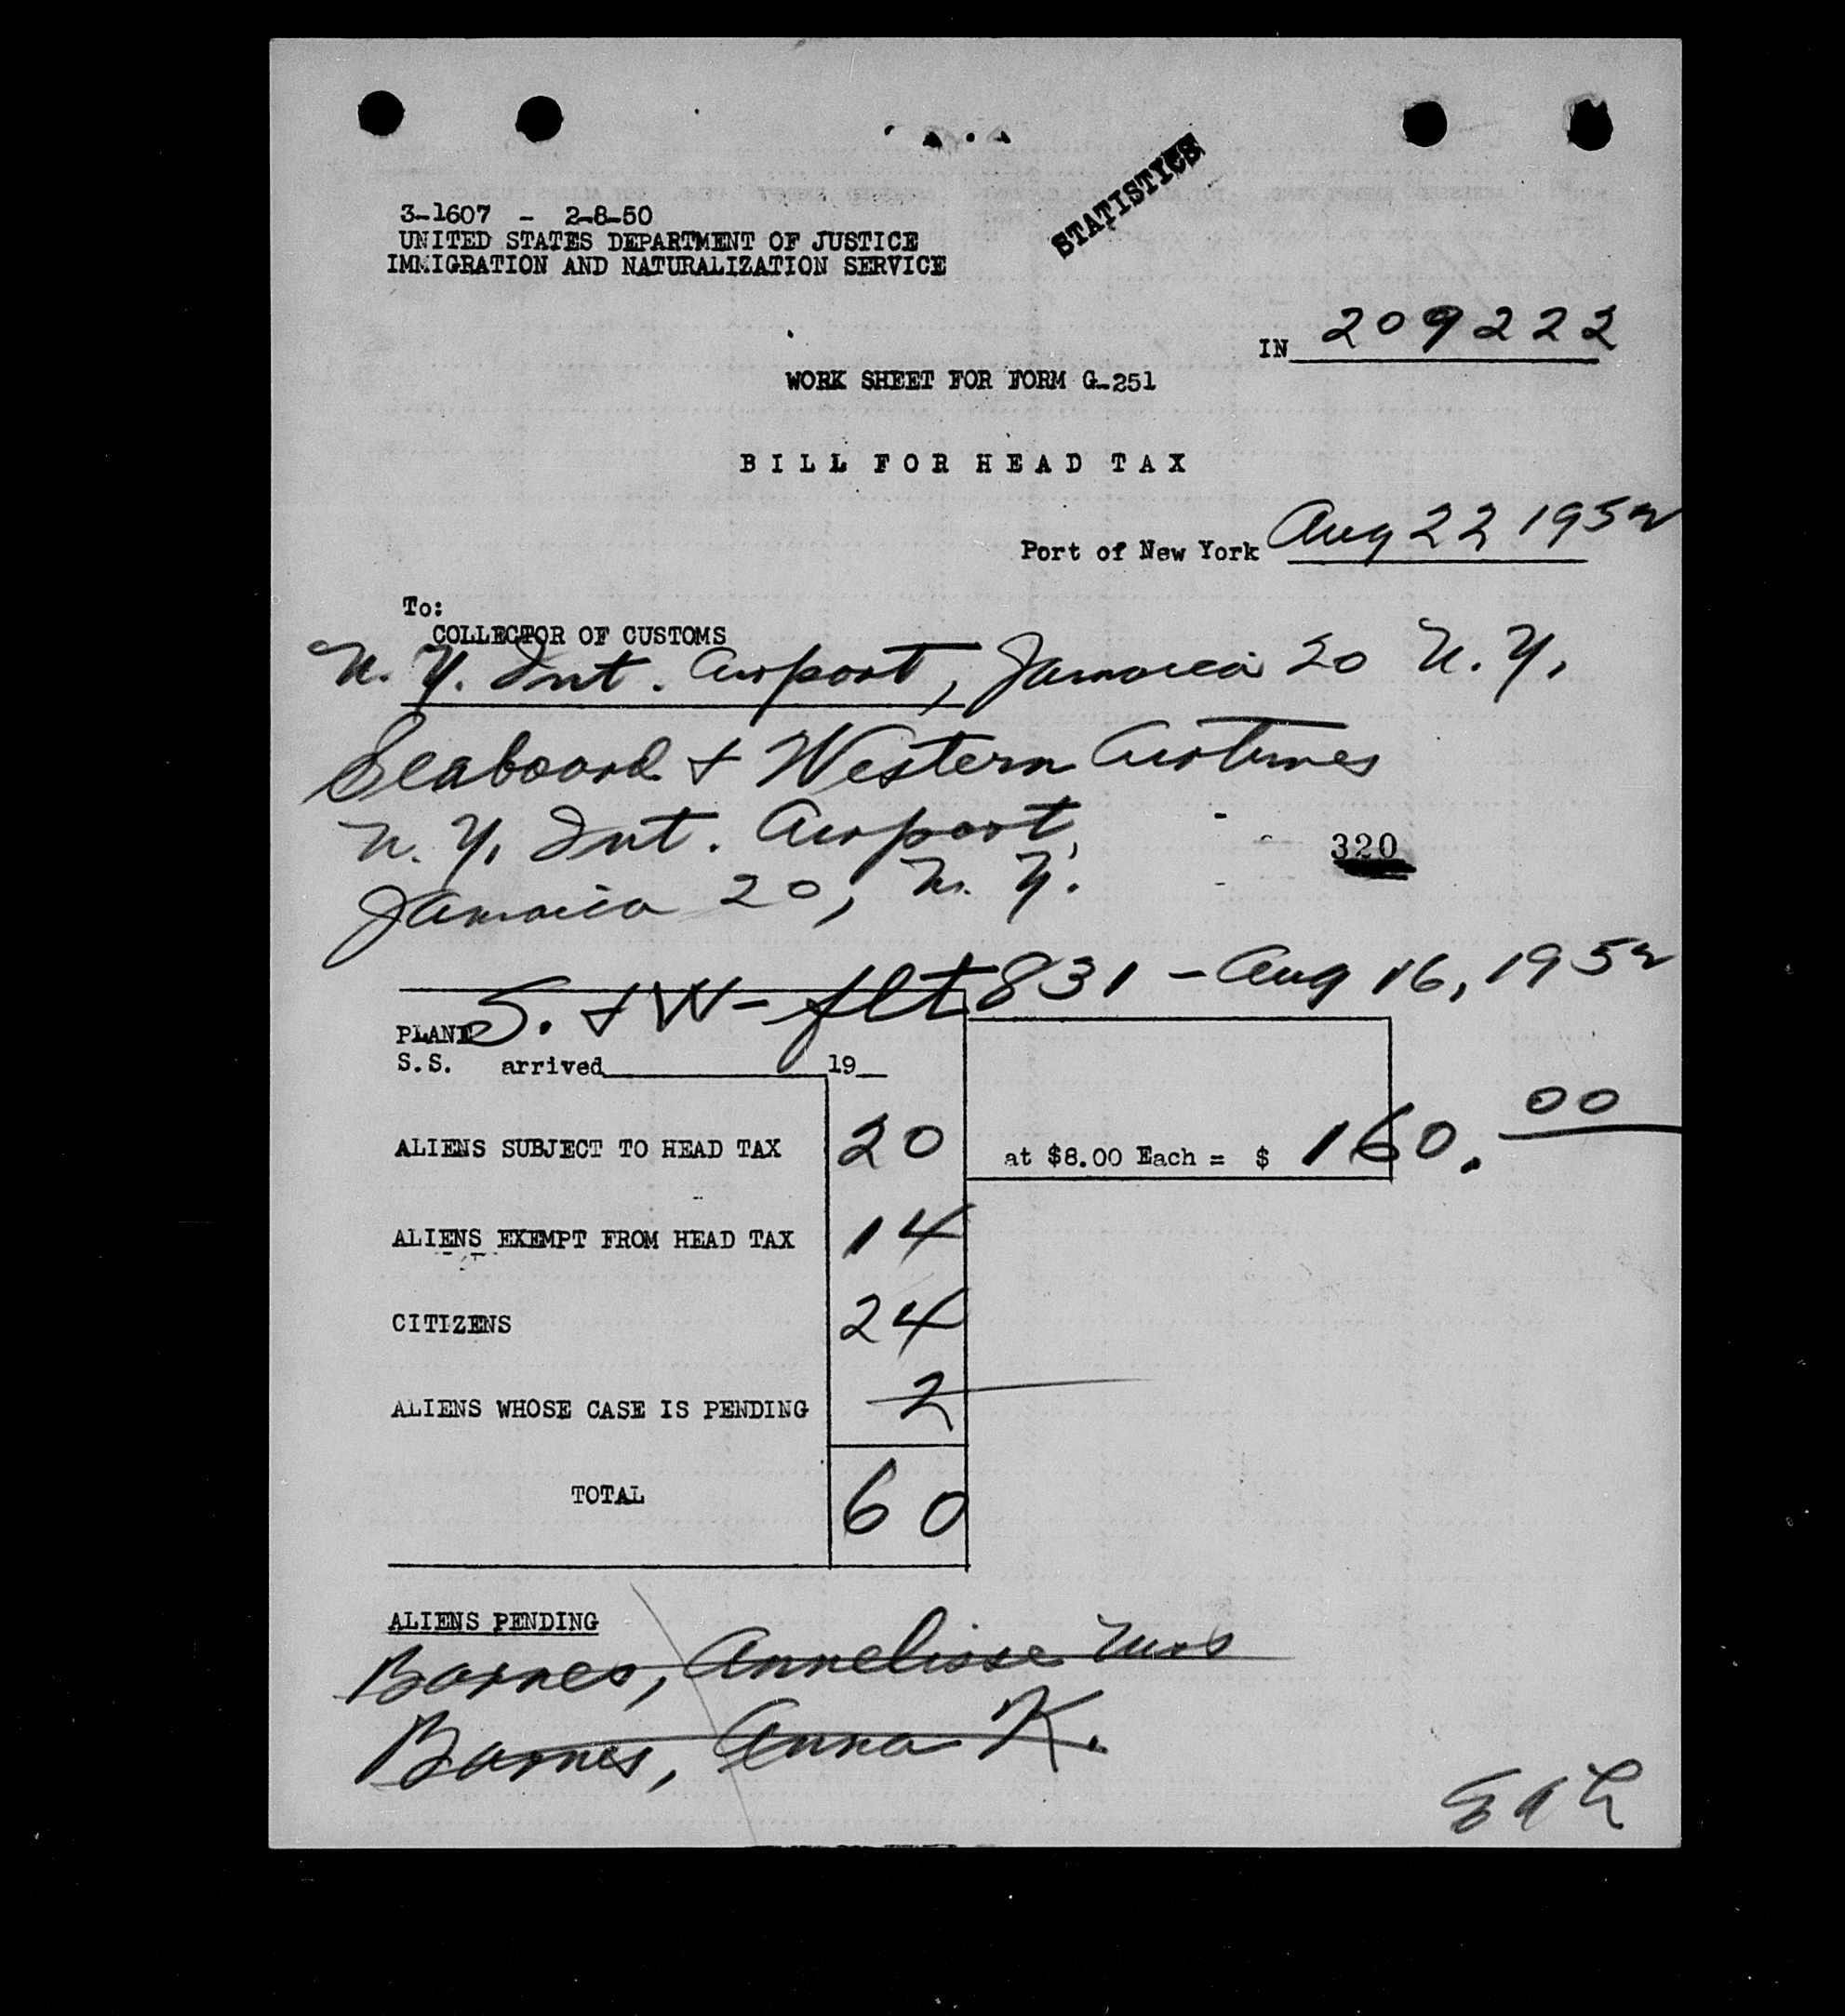 STATISTICS
3-1607 - 2-8-50
UNITED STATES DEPARTMENT OF JUSTICE
IMMIGRATION AND NATURALIZATION SERVICE
IN 209222
WORK SHEET FOR FORM G-251
BILL FOR HEAD TAX
Port of New York Aug 22 1952
To:
COLLECTOR OF CUSTOMS
N. Y. Int. Airport, Jamaica 20 N. Y.
Seaboard & Western Airlines
N. Y. Int. Airport,
320
Jamaica 20, N. Y.
S. & W - flt 831 - Aug 16, 1952
PLANE
S.S. arrived 19
ALIENS SUBJECT TO HEAD TAX 20 at $8.00 Each = $ 160.00
ALIENS EXEMPT FROM HEAD TAX 14
CITIZENS 24
ALIENS WHOSE CASE IS PENDING 2
TOTAL 60
ALIENS PENDING
Barnes, Annelisse Mrs
Barnes, Anna K.